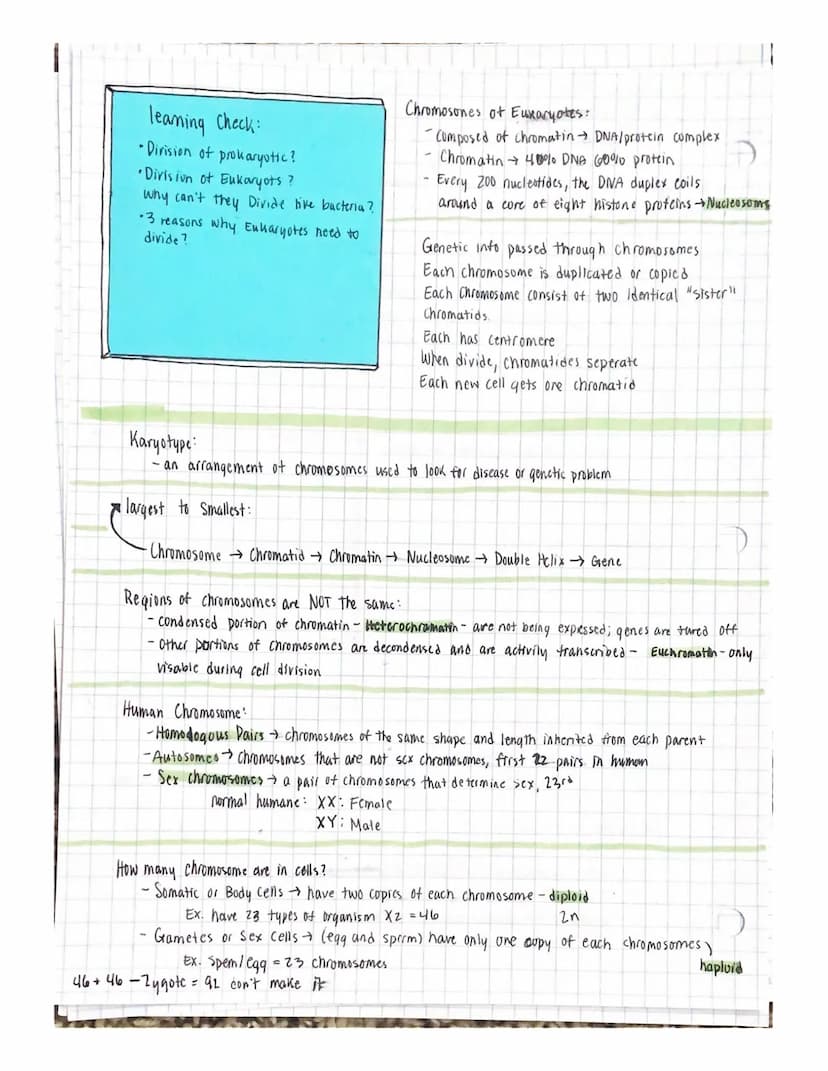 learning Check:
• Division of prokaryotic?
• Division of Eukaryots?
why can't they Divide like bacteria?
• 3 reasons why Eukaryotes need to
divide?
Chromosones of Eukaryotes:
- Composed of chromatin → DNA/protein complex
- Chromatin → 40% DNA 60% protein
- Every 200 nucleotides, the DNA duplex coils
around a core of eight histone proteins → Nucleosoms
Genetic info passed through chromosomes
Each chromosome is duplicated or copied
Each Chromosome consist of two identical "sister"
chromatids.
Each has centromere
When divide, chromatides seperate
Each new cell gets one chromatid
Karyotype:
- an arrangement of chromosomes used to look for disease or genetic problem
largest to smallest:
Chromosome → Chromatid → Chromatin → Nucleosome → Double Helix → Gene
Regions of chromosomes are NOT the same:
- condensed portion of chromatin - Heterochromatin - are not being expessed; genes are tured off
- other portions of chromosomes are decondensed and are activily transcribed - Euchromatin - only
visable during cell division
Human Chromosome:
- Homodogous Pairs → chromosomes of the same shape and length inherited from each parent
- Autosomes → chromosomes that are not sex chromosomes, first 22 pairs in human
- Sex chromosomes → a pair of chromosomes that determine sex, 23rd
normal humane: XX: Female
XY: Male
How many chromosome are in cells?
- Somatic or Body cells → have two copies of each chromosome - diploid
Ex. have 23 types of organism X2 = 46 2n
- Gametes or Sex cells → (egg and sperm) have only one copy of each chromosomes
Ex. Spem/egg = 23 chromosomes haploid
46 + 46 - Zygote = 92 can't make it